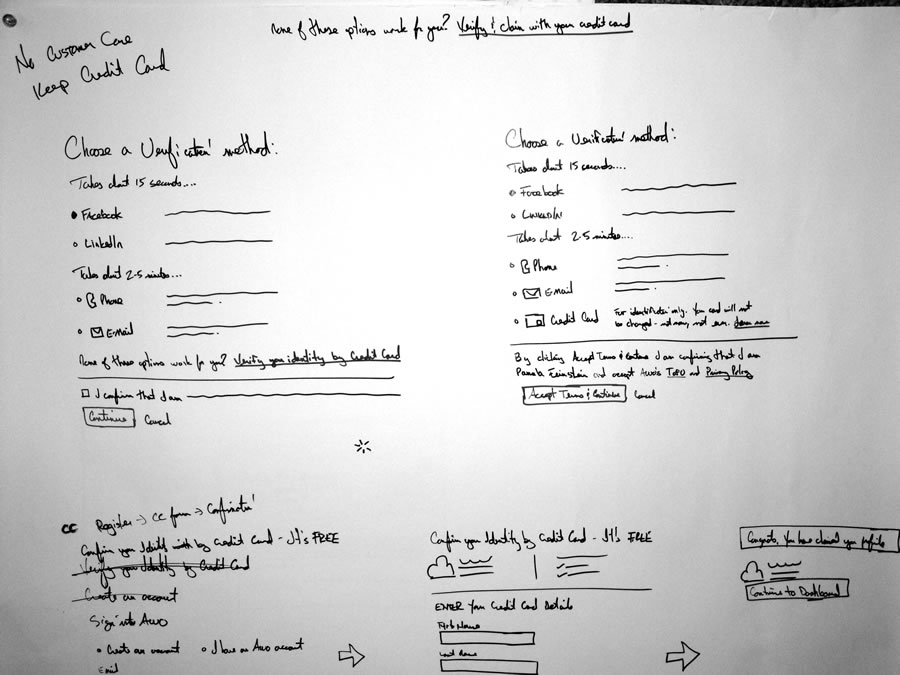 None of these options work for you? Verify & claim with your credit card
No Customer Care
Keep Credit Card
Choose a Verification method:
Takes about 15 seconds....
Facebook
LinkedIn
Takes about 2-5 minutes...
Phone
E-Mail
None of these options work for you? Verify your identity by Credit Card
I confirm that I am
Continue Cancel
Choose a Verification method:
Takes about 15 seconds....
Facebook
LinkedIn
Takes about 2-5 minutes....
Phone
E-Mail
Credit Card For identification only. Your card will not
be charged - not now, not ever. Learn more
By clicking Accept Terms & Continue I am confirming that I am
Pamela Feinstein and accept Avvo's and Privacy Policy
Accept Terms & Continue Cancel
CC Register -> CC form -> Confirmation
Confirm your Identity with by Credit Card - It's FREE
Verify your Identity by Credit Card
Create an account
Sign into Avvo
Create an account I have an Avvo account
Email
Confirm your Identity by Credit Card - It's FREE
ENTER Your Credit Card Details
First Name
Last Name
Congrats, You have claimed your profile
Continue to Dashboard